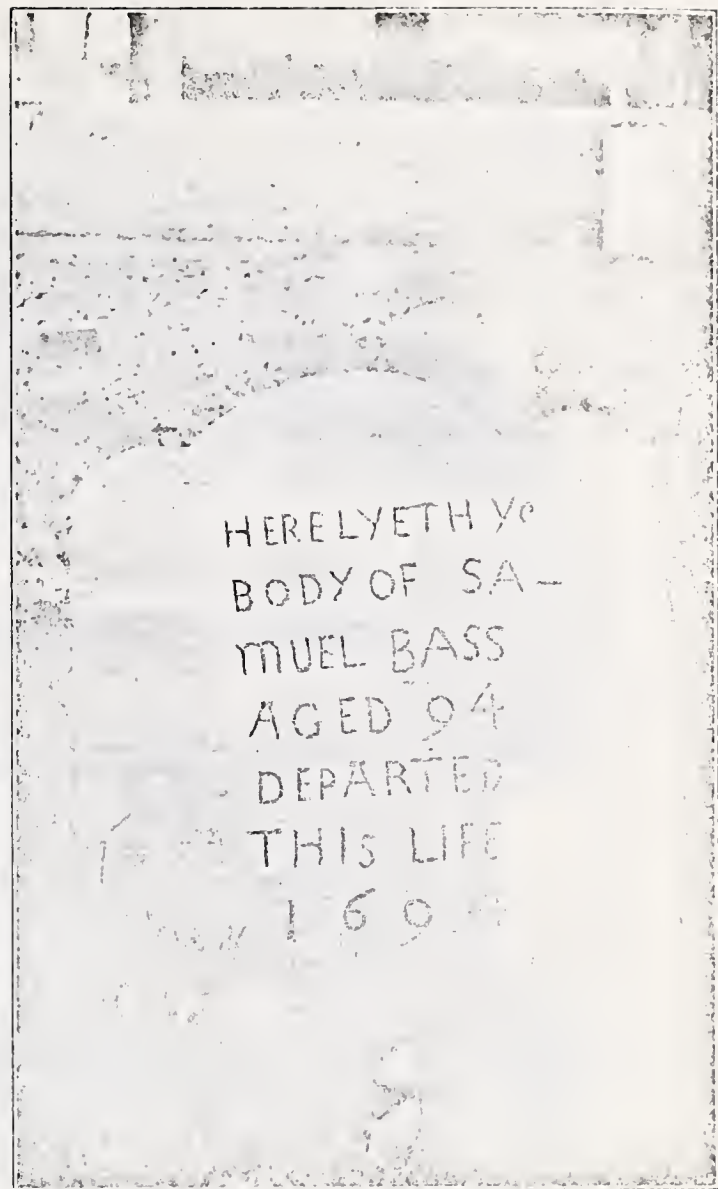 HERE LYETH Ye
BODY OF SA-
MUEL BASS
AGED 94
DEPARTED
THIS LIFE